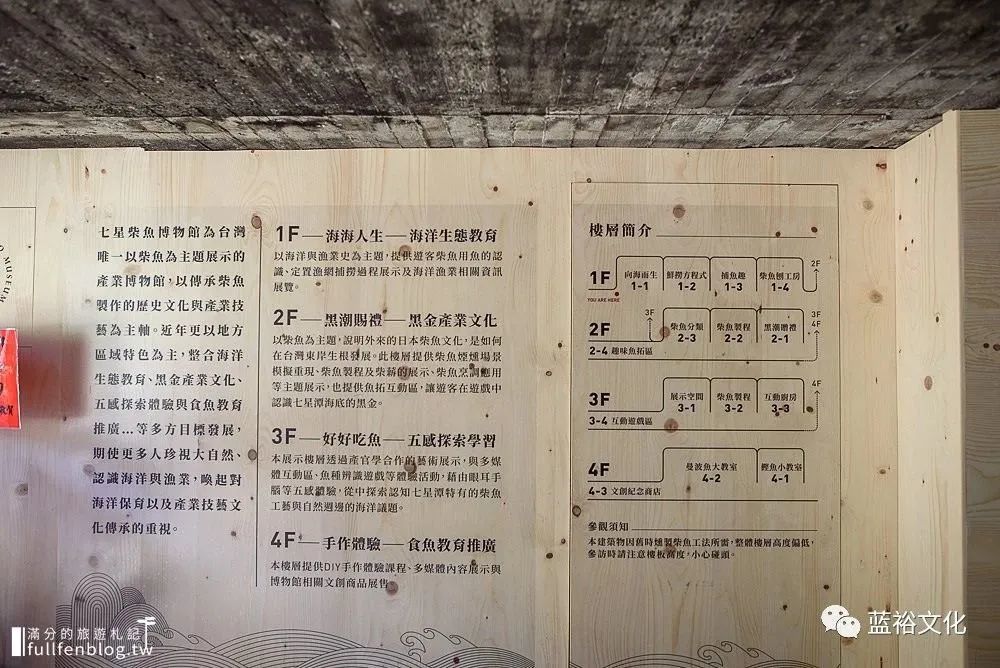 七星柴魚博物館為台灣
唯一以柴魚為主題展示的
產業博物館，以傳承柴魚
製作的歷史文化與產業技
藝為主軸。近年更以地方
區域特色為主，整合海洋
生態教育、黑金產業文化、
五感探索體驗與食魚教育
推廣…等多方目標發展，
期使更多人珍視大自然、
認識海洋與漁業，喚起對
海洋保育以及產業技藝文
化傳承的重視。
1F—海海人生—海洋生態教育
以海洋與漁業史為主題，提供遊客柴魚用魚的認
識、定置漁網捕撈過程展示及海洋漁業相關資訊
展覽。
2F—黑潮賜禮—黑金產業文化
以柴魚為主題，說明外來的日本柴魚文化，是如何
在台灣東岸生根發展。此樓層提供柴魚煙燻場景
模擬重現、柴魚製程及柴薪的展示、柴魚烹調應用
等主題展示，也提供魚拓互動區，讓遊客在遊戲中
認識七星潭海底的黑金。
3F—好好吃魚—五感探索學習
本展示樓層透過產官學合作的藝術展示，與多媒
體互動區、魚種辨識遊戲等體驗活動，藉由眼耳手
腦等五感體驗，從中探索認知七星潭特有的柴魚
工藝與自然週邊的海洋議題。
4F—手作體驗—食魚教育推廣
本樓層提供DIY手作體驗課程、多媒體內容展示與
博物館相關文創商品展售。
樓層簡介
1F
YOU ARE HERE
向海而生
1-1
鮮撈方程式
1-2
捕魚趣
1-3
柴魚刨工房
1-4
2F
2F
3F
柴魚分類
2-3
柴魚製程
2-2
黑潮贈禮
2-1
3F
4F
2-4 趣味魚拓區
3F
展示空間
3-1
柴魚製程
3-2
互動廚房
3-3
4F
3-4 互動遊戲區
4F
曼波魚大教室
4-2
鰹魚小教室
4-1
4-3 文創紀念商店
參觀須知
本建築物因舊時燻製柴魚工法所需，整體樓層高度偏低，
參訪時請注意樓板高度，小心碰頭。
MUSEUM
滿分的旅遊札記
fullfenblog.tw
蓝裕文化